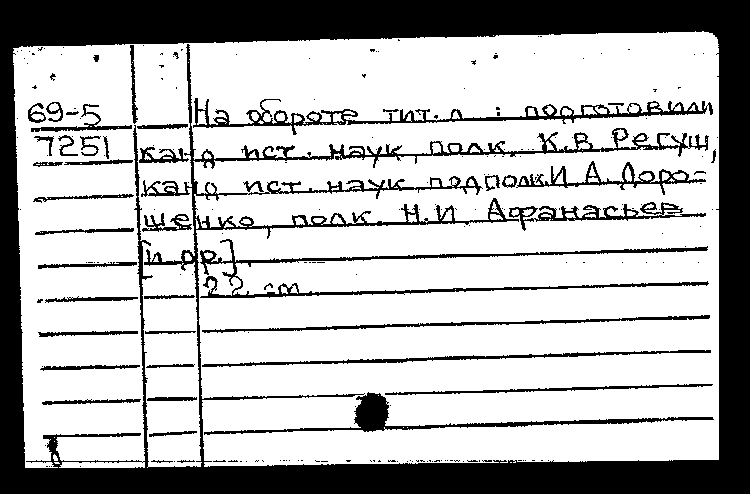 69-5 На обороте тит. л : подготовили
7251 канд ист. наук, полк. К.В. Регуш,
канд ист. наук подполк. И.А. Доро=
шенко, полк. Н.И. Афанасьев
[и др.].
22 cm.